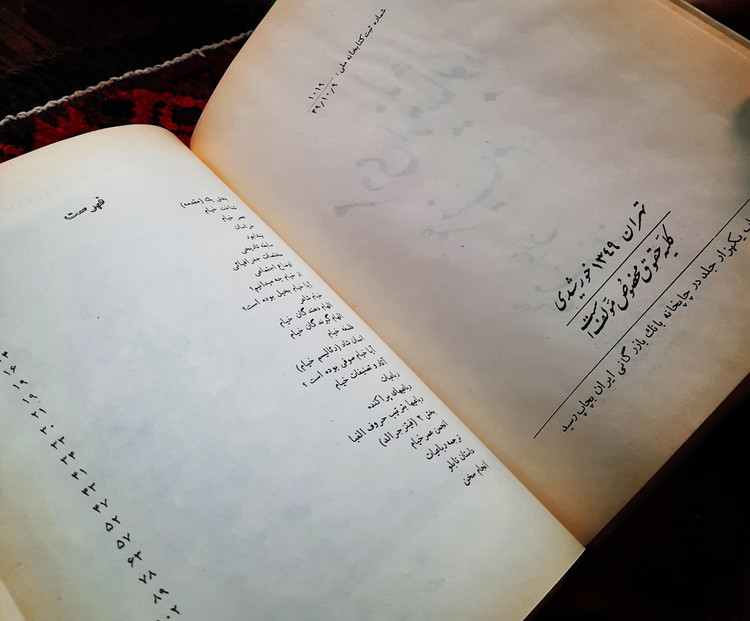 شماره ثبت کتابخانه ملی:
۱۰۱۹
۴۹/۱۰/۹
تهران ۱۳۴۹ خورشیدی
کلیه حقوق مخصوص مؤلف است
یکهزار جلد در چاپخانه بانک بازرگانی ایران بچاپ رسید
فهرست
بخش یک (مقدمه)
شناخت خیام
عصر خیام
سابقه تاریخی
مختصات جغرافیائی
اوضاع اجتماعی
از خیام چه میدانیم؟
آیا خیام بخیل بوده است؟
خیام شاعر
الهام دهندگان خیام
الهام گیرندگان خیام
فلسفه خیام
انسان شاد (رئالیسم خیام)
آیا خیام صوفی بوده است؟
آثار و تصنیفات خیام
رباعیات
رباعیهای پراکنده
رباعیها بترتیب حروف الفبا
بخش ۲ (فیتز جرالد)
انجمن عمر خیام
ترجمه رباعیات
داستان تابلو
انجام سخن
۱۶
۱۹
۱۹
۲۱
۳۰
۳۳
۳۴
۴۱
۴۳
۴۷
۵۲
۵۷
۶۳
۷۸
۸۹